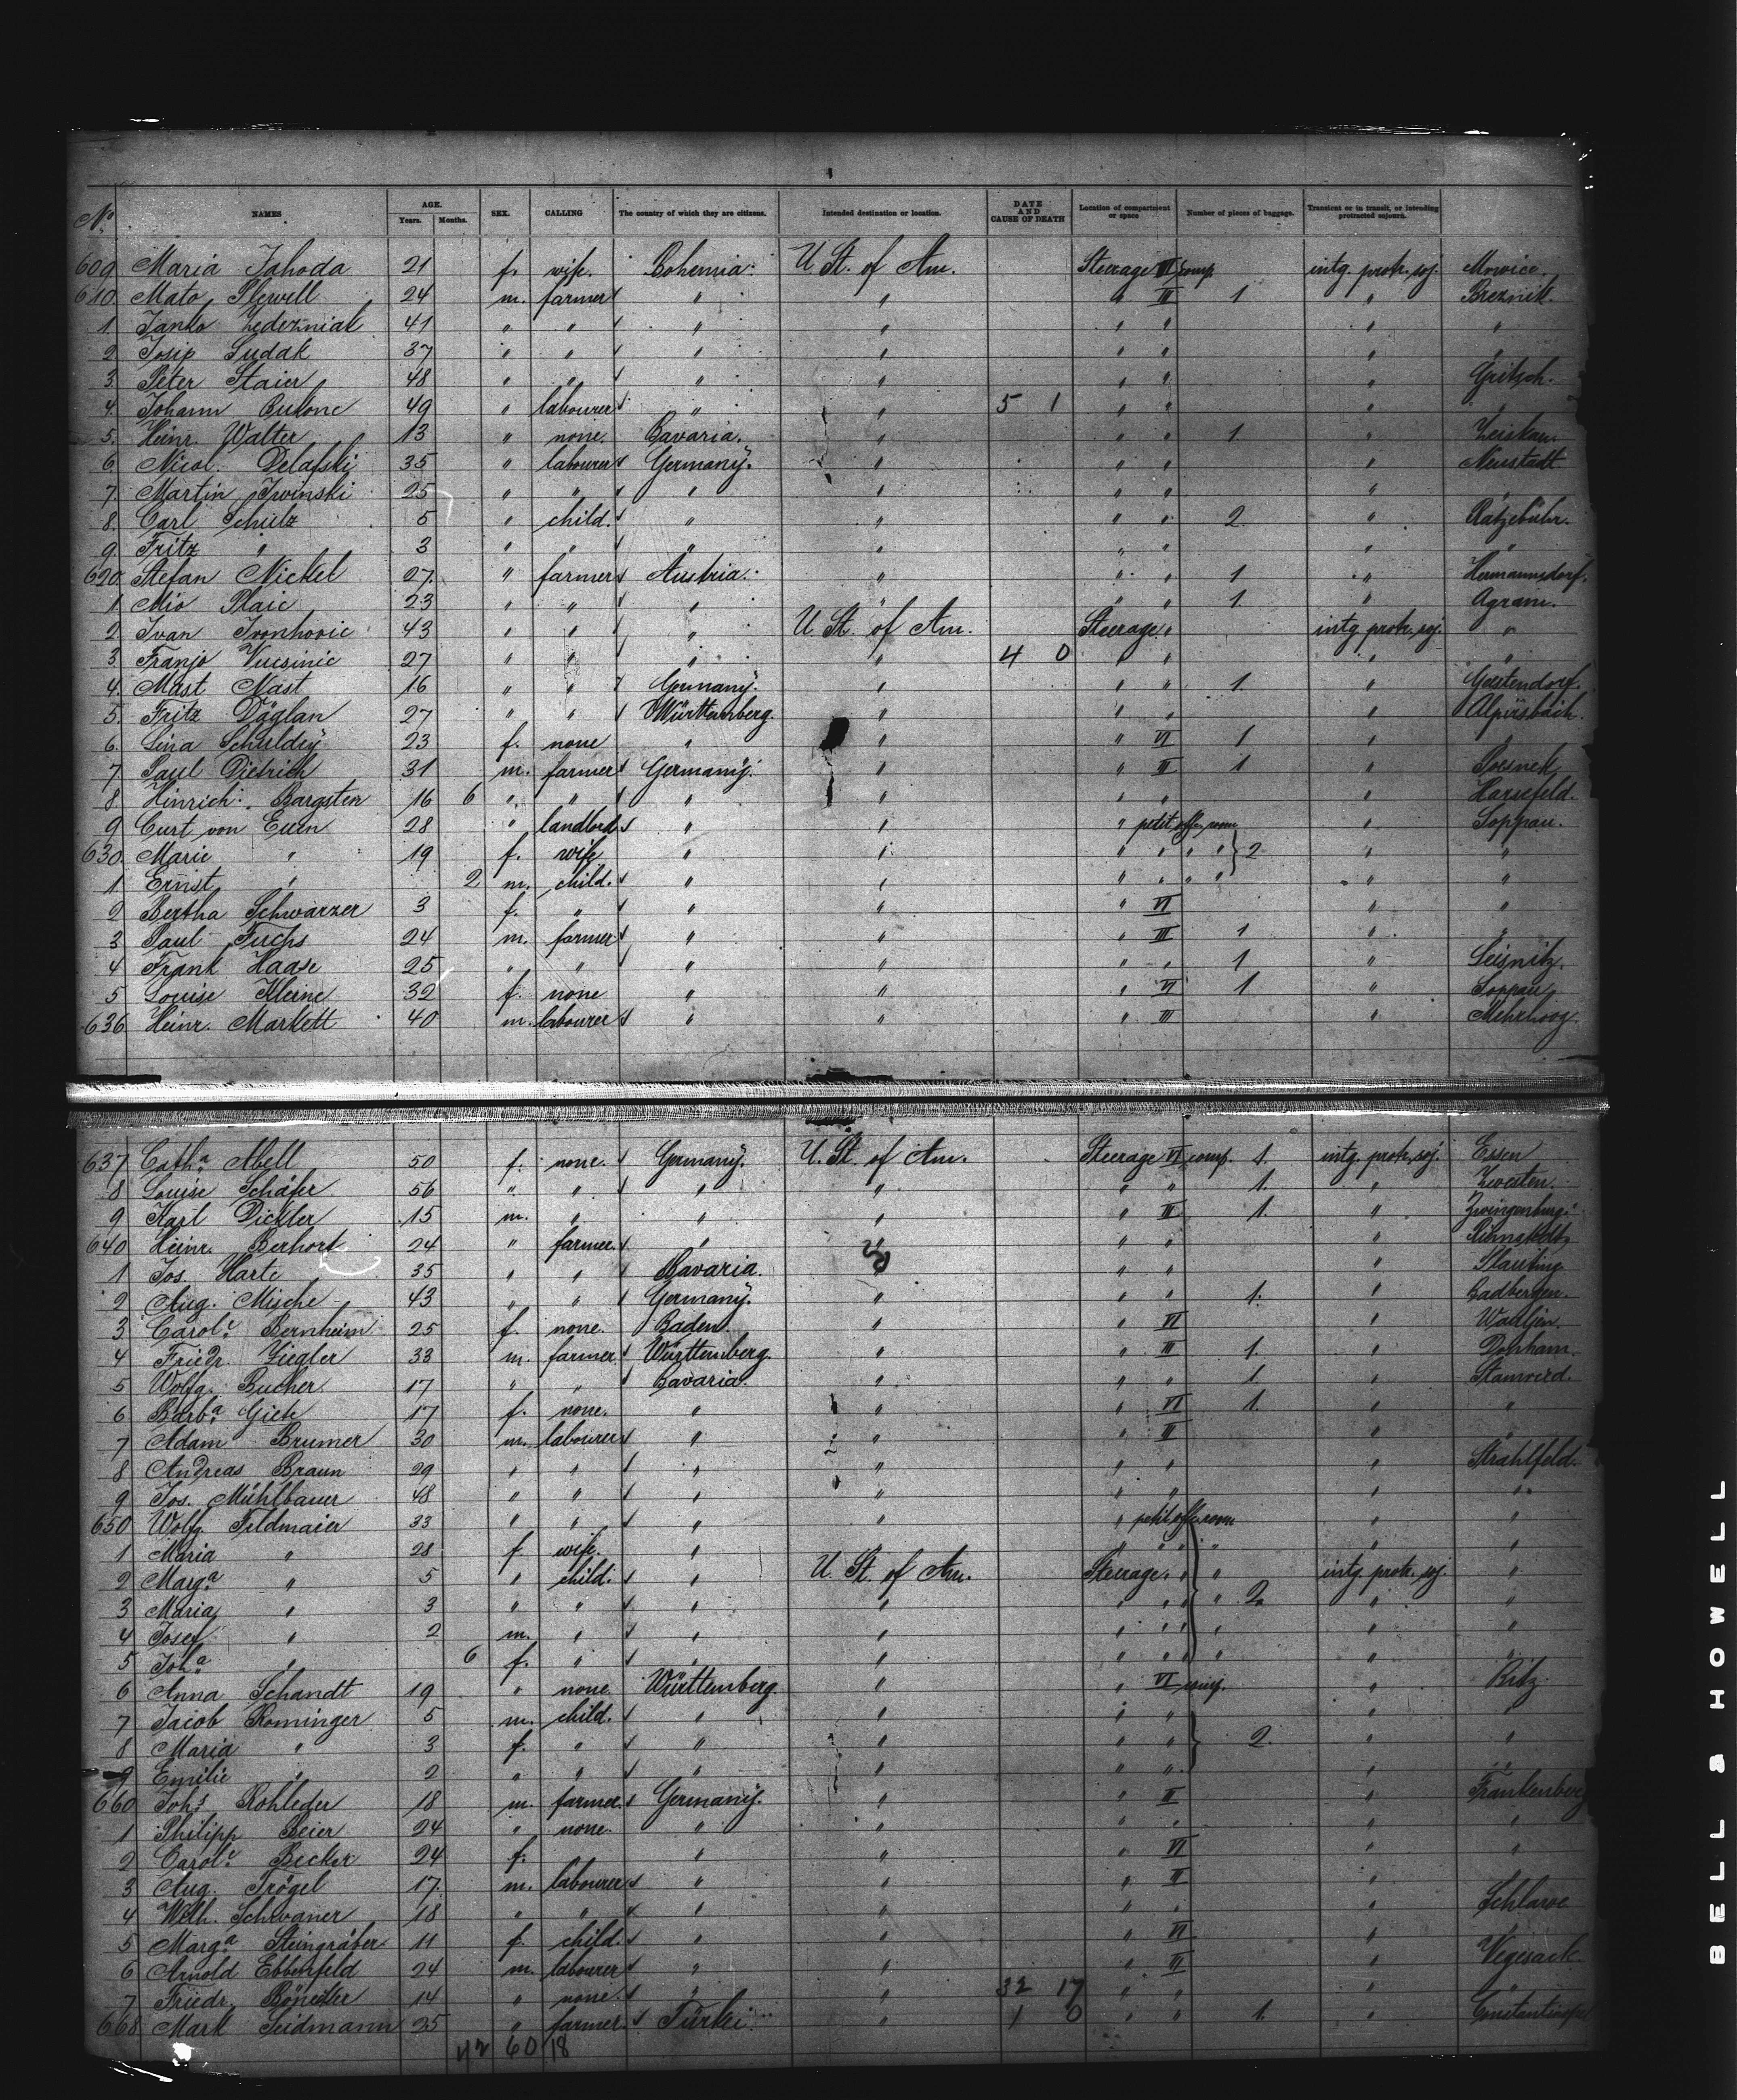 No. NAMES AGE. Years. Months. SEX. CALLING The country of which they are citizens. Intended destination or location. DATE AND CAUSE OF DEATH Location of compartment or space Number of pieces of baggage. Transient or in transit, or intending protracted sojourn.
609 Maria Jahoda 21 f. wife. Bohemia. U. St. of Am. Steerage III comp intg. protr. soj.
610. Mato 24 m. farmer " " " III 1 " Breznik.
1. Janko 41 " " " " " " " "
2. Josip Sudak 37 " " " " " " " "
3. Peter Staier 48 " " " " " " "
4. Johann 49 " labourer " " 5 1 " " " "
5. Heinr. Walter 13 " none. Bavaria. " " " 1 "
6. Nicol. Delafski 35 " labourer Germany. " " " " Neustadt
7. Martin Iwinski 25 " " " " " " "
8. Carl Schulz 5 " child. " " " " 2 " Ratzebuhr.
9. Fritz " 3 " " " " " " " "
620. Stefan Nickel 27. " farmer Austria. " " " 1 " Hermannsdorf.
1. Mio Plaic 23 " " " " " " 1 " Agram.
2. Ivan 43 " " " U. St. of Am. Steerage " intg. protr. soj. "
3. Franjo Vucsinic 27 " " " " 4 0 " " " "
4. Mast Nast 16 " " Germany. " " " 1 " Geestendorf.
5. Fritz Döglan 27 " " Württemberg. " " " " Alpirsbach.
6. Lina 23 f. none " " " VI 1 " "
7. Paul Dietrich 31 m. farmer Germany. " " III 1 " Poesneck
8 Hinrich Bargsten 16 6 " " " " " " " Harsefeld.
9 Curt von Euen 28 " landlord " " " petit offc. room " Soppau.
630. Marie " 19 f. wife " " " " " " 2 " "
1 Ernst " 2 m. child. " " " " " " " "
2 Bertha Schwarzer 3 f. " " " " VI " "
3 Paul Fuchs 24 m. farmer " " " III 1 " "
4 Frank Haase 25 " " " " " " 1 " Leisnitz.
5 Louise Kleine 32 f. none " " " VI 1 " Soppau
636 Heinr. Markett 40 m. labourer " " " III " Mehrhoog.
637 Catha. Abell 50 f. none. Germany. U. St. of Am. Steerage VI comp. 1. intg. protr. soj. Essen
8 Louise Schäfer 56 " " " " " " 1. " Zwesten.
9 Karl Dickler 15 m. " " " " III 1. " Zwingenburg.
640 Heinr. Berhort 24 " farmer. " " " " "
1 Jos. Harte 35 " " Bavaria. " " " "
2 Aug. Mische 43 " " Germany. " " " 1. " Badbergen.
3 Carole. Bernheim 25 f. none. Baden. " " VI "
4 Friedr. Ziegler 33 m. farmer Württemberg. " " III 1. " Dornham.
5 Wolfg. Bucher 17 " " Bavaria. " " " 1. " Stamried.
6 Barba. Giek 17 f. none. " " " VI 1. " "
7 Adam Brumer 30 m. labourer " " " III " "
8 Andreas Braun 29 " " " " " " " Strahlfeld.
9 Jos. Mühlbauer 48 " " " " " " " "
650 Wolfg. Feldmaier 33 " " " " " petit offc. room " "
1 Maria " 28 f. wife. " " " " " " "
2 Marga. " 5 " child. " U. St. of Am. Steerage " " intg. protr. soj. "
3 Maria " 3 " " " " " " " 2. " "
4 Josef " 2 m. " " " " " " " "
5 Joha. " 6 f. " " " " " " " "
6 Anna Schandt 19 " none Württemberg. " " VI comp. "
7 Jacob Rominger 5 m. child. " " " " " "
8 Maria " 3 f. " " " " " 2. " "
9 Emilie " 2 " " " " " " " "
660 Johs. Rohleder 18 m. farmer. Germany. " " III " Frankenberg
1 Philipp Beier 24 " none. " " " " " "
2 Carole. Becker 24 f. " " " VI " "
3 Aug. Trögel 17. m. labourer " " " III "
4 Wilh. Schwaner 18 " " " " " " " Schlawe
5 Marga. Steingräber 11 f. child. " " " VI "
6 Arnold Ebbenfeld 24 m. labourer " " " III " Vegesack
7 Friedr. 14 " none. " " 32 17 " " " "
668 Mark Seidmann 25 " farmer. Türkei " 1 0 " " 1. "
42 60 18
BELL & HOWELL